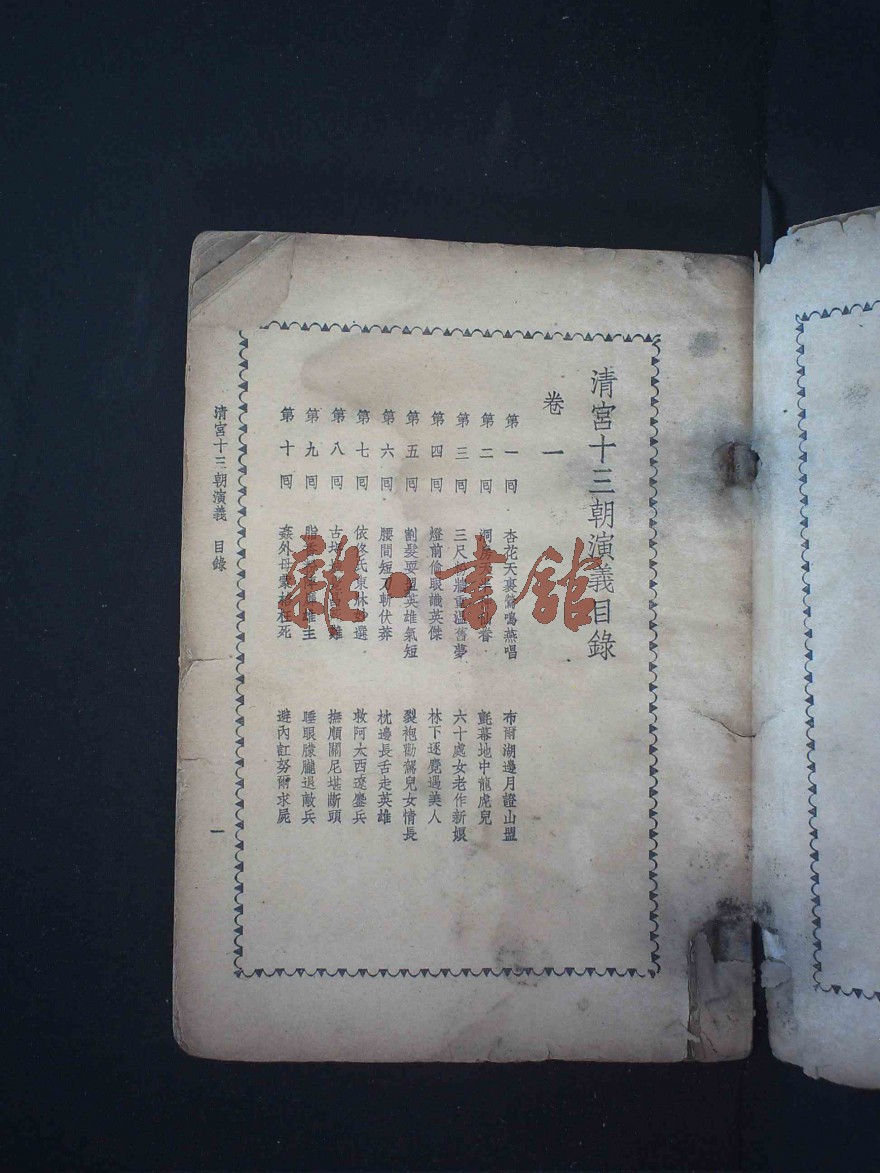 清宮十三朝演義目錄
卷一
第一回 杏花天裏鶯鳴燕唱 布爾湖邊月證山盟
第二回 洞房 眷 氈幕地中龍虎兒
第三回 三尺 牆重溫舊夢 六十處女老作新娘
第四回 燈前偷眼識英傑 林下逐鹿遇美人
第五回 割髮要盟英雄氣短 裂袍勸駕兒女情長
第六回 腰間短刀斬伏莽 枕邊長舌走英雄
第七回 依 氏東牀 選 救阿太西遼鏖兵
第八回 古 難 撫順關尼堪斷頭
第九回 雄主 睡眼朦朧退敵兵
第十回 姦外母 枉死 避內訌努爾求屍
清宮十三朝演義 目錄
一
雜·書館